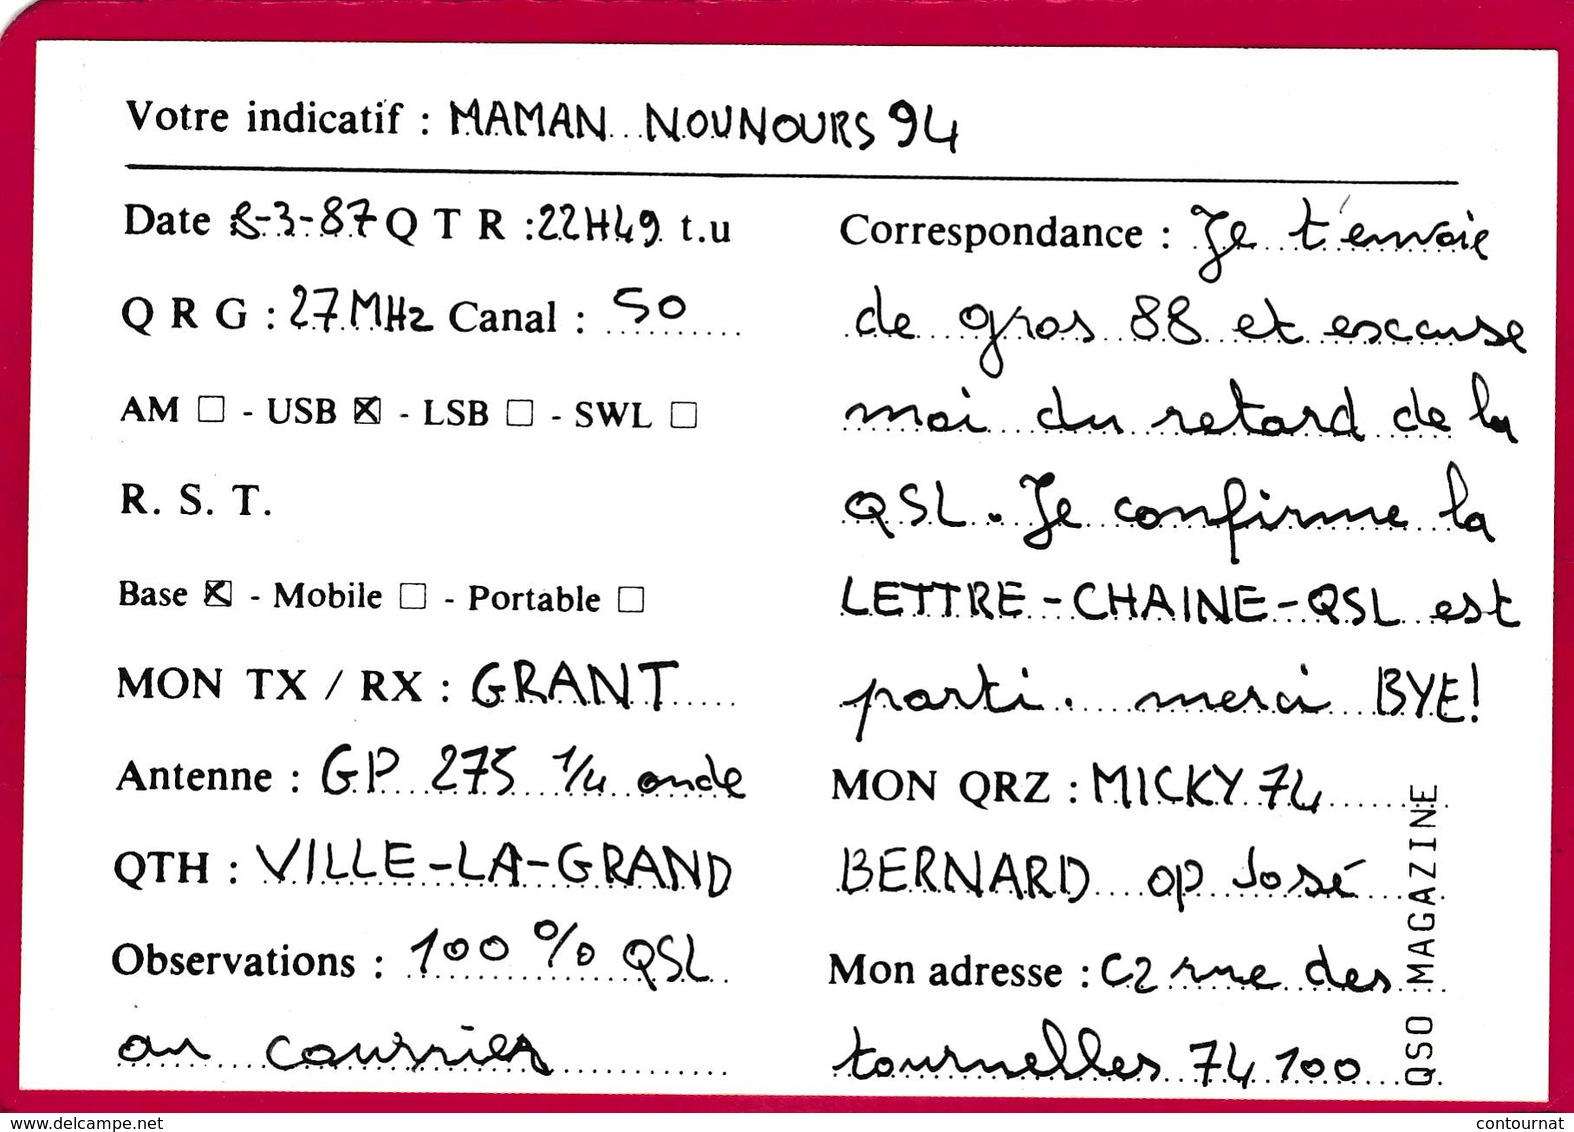 Votre indicatif : MAMAN NOUNOURS 94
Date 8-3-87 Q T R : 22H49 t.u
Q R G : 27 MHz Canal : 50
AM ☐ - USB ☒ - LSB ☐ - SWL ☐
R. S. T.
Base ☒ - Mobile ☐ - Portable ☐
MON TX / RX : GRANT
Antenne : GP 275 1/4 onde
QTH : VILLE-LA-GRAND
Observations : 100 % QSL
au courrier
Correspondance : Je t'envoie
de gros 88 et escause
moi du retard de la
QSL. Je confirme la
LETTRE-CHAINE-QSL est
parti. merci BYE!
MON QRZ : MICKY 74
BERNARD op José
Mon adresse : C2 rue des
tournelles 74 100
QSO MAGAZINE
www.delcampe.net
contournat